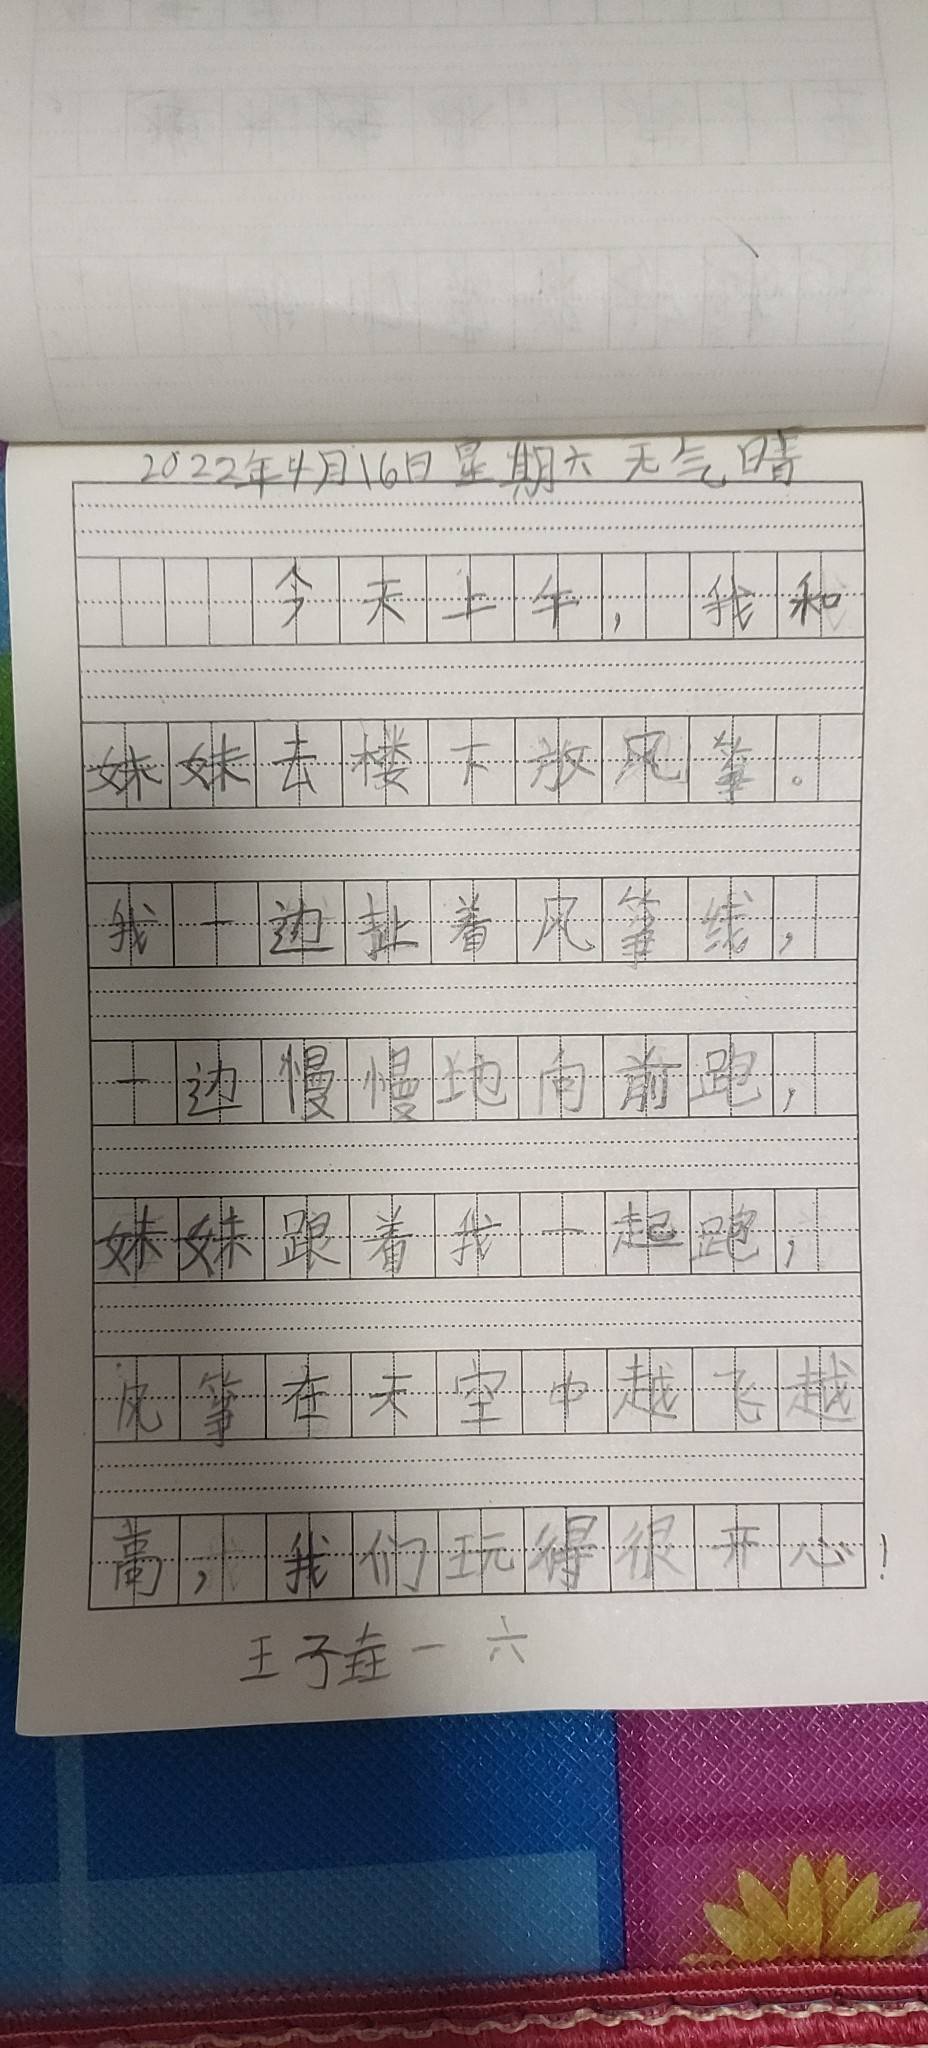 2022年4月16日星期六 天气晴
今天上午，我和
妹妹去楼下放风筝。
我一边扯着风筝线，
一边慢慢地向前跑，
妹妹跟着我一起跑，
风筝在天空中越飞越
高，我们玩得很开心！
王子垚 一 六